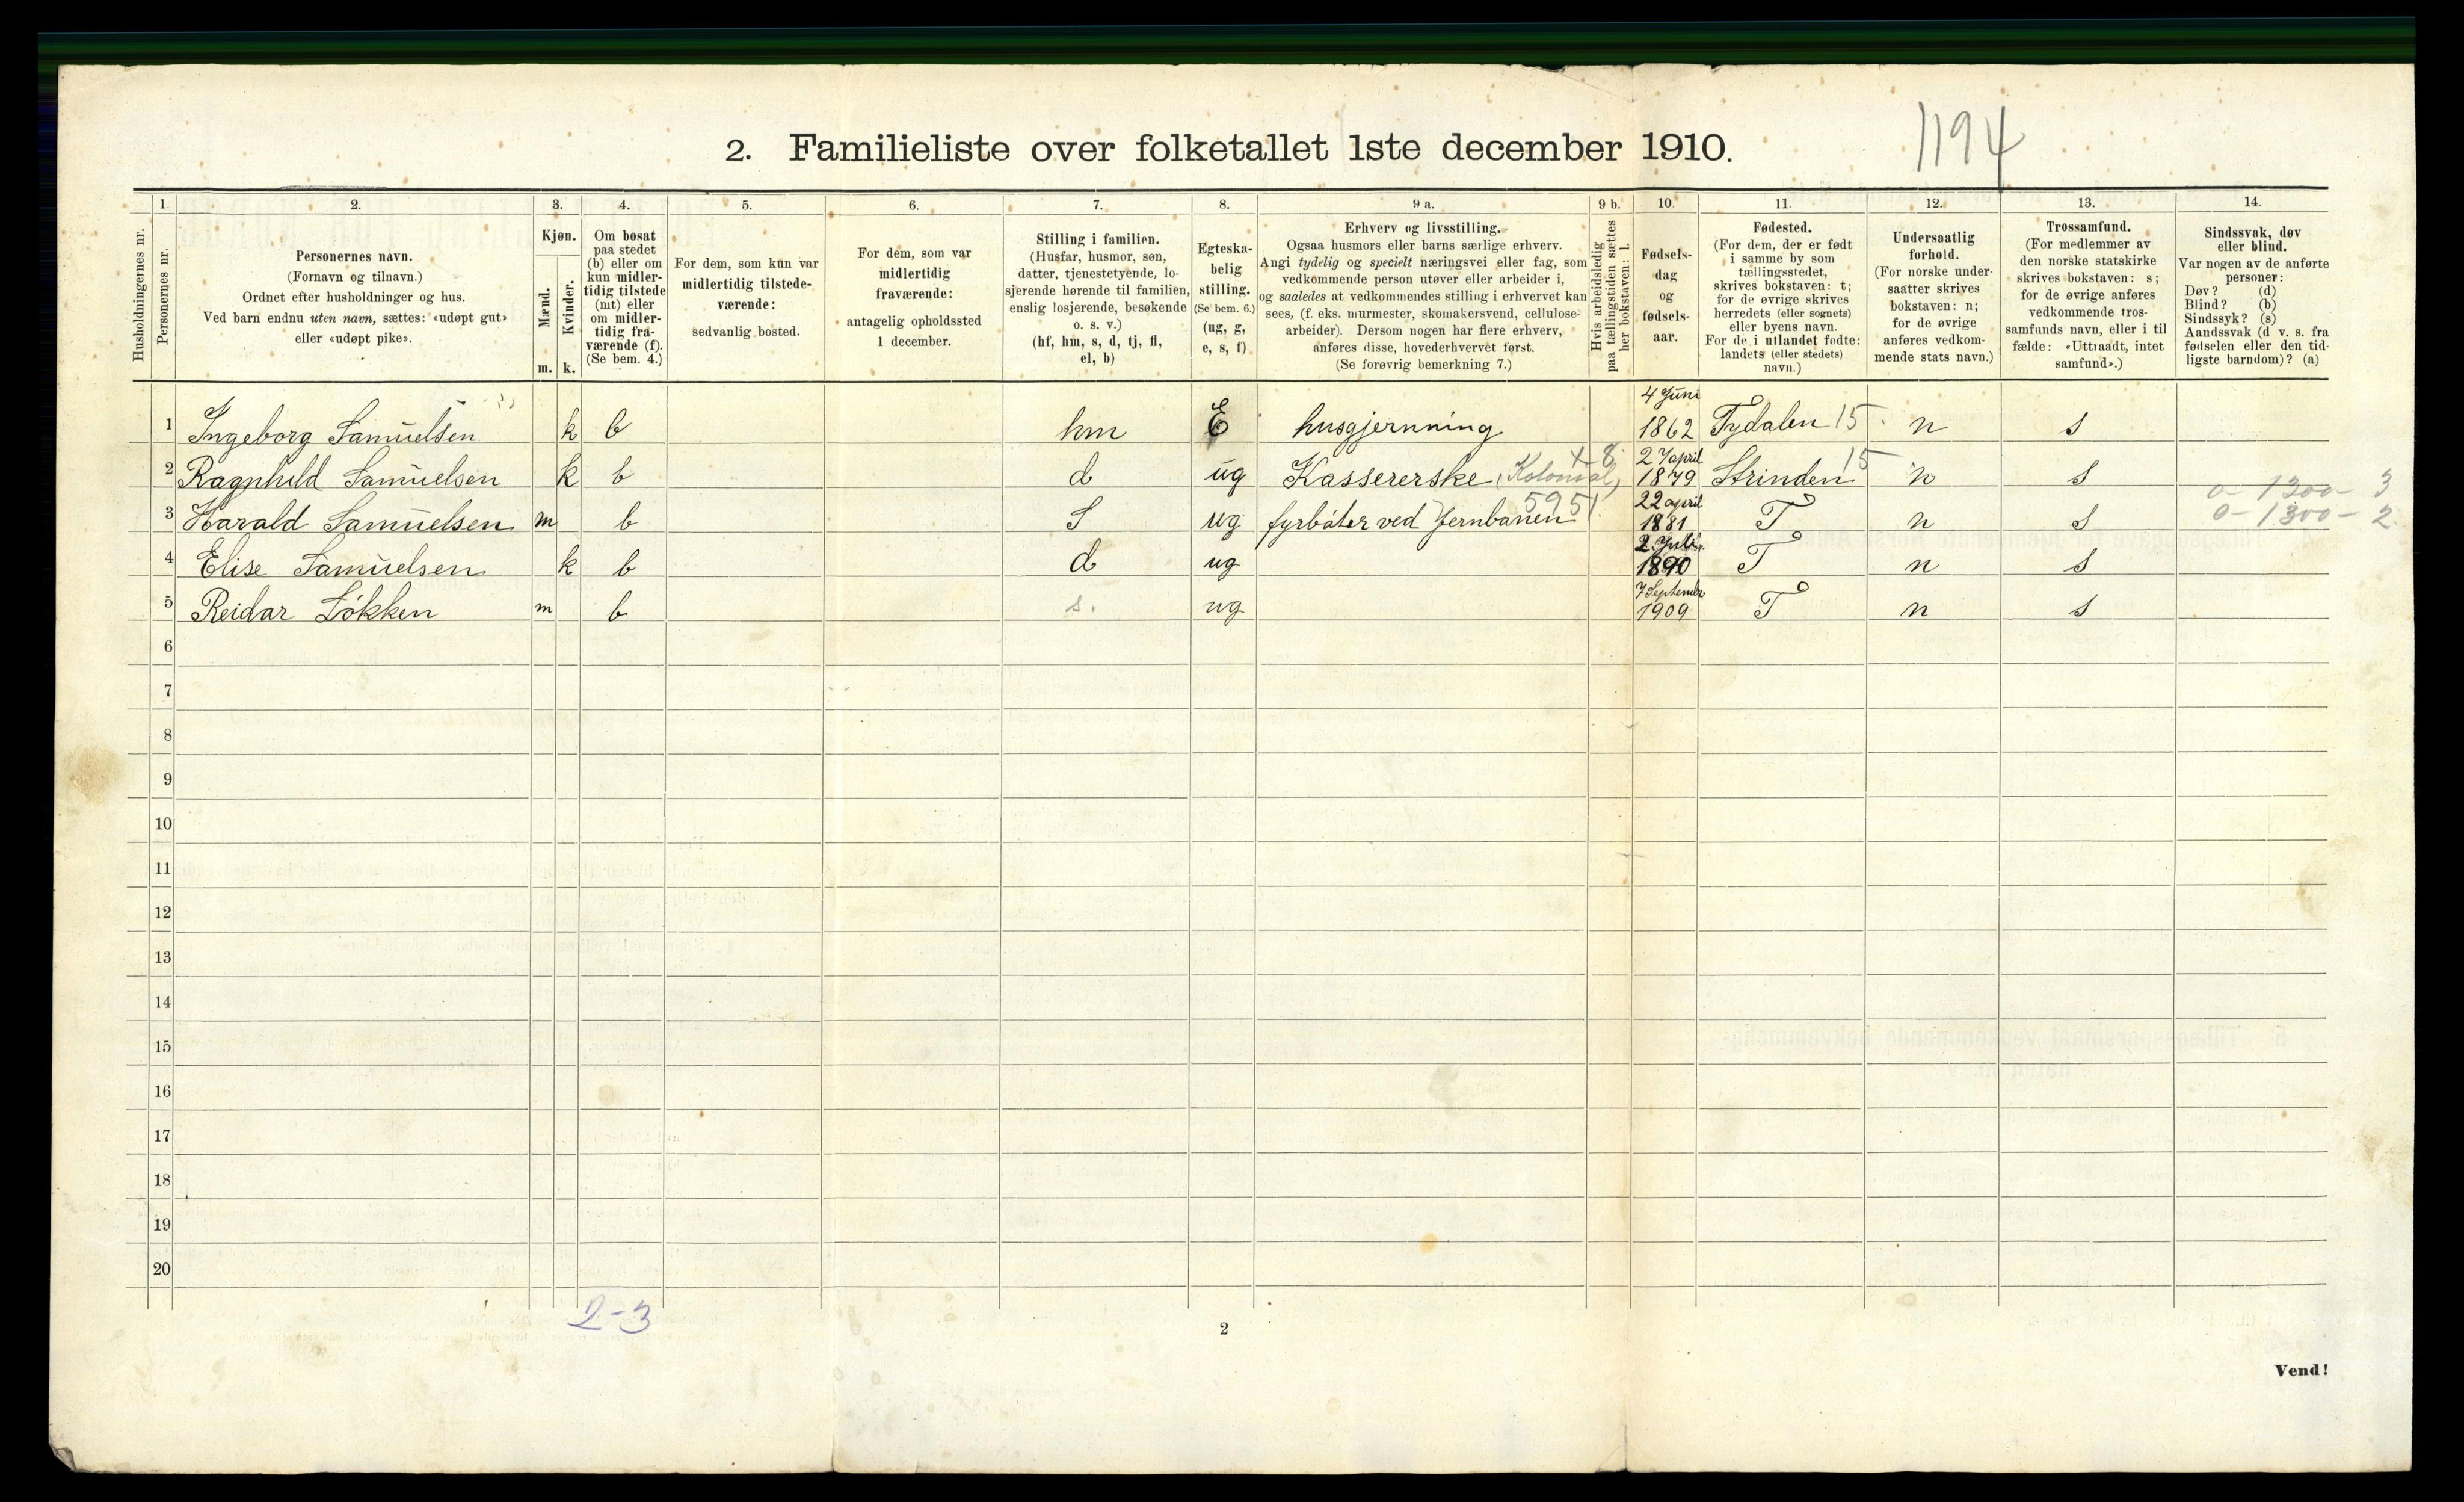 1194
2. Familieliste over folketallet 1ste december 1910.
Husholdningernes nr.
1. Personernes nr.
2. Personernes navn.
(Fornavn og tilnavn.)
Ordnet efter husholdninger og hus.
Ved barn endnu uten navn, sættes: «udøpt gut»
eller «udøpt pike».
3. Kjøn.
Mænd. m.
Kvinder. k.
4. Om bosat
paa stedet
(b) eller om
kun midler-
tidig tilstede
(mt) eller
om midler-
tidig fra-
værende (f).
(Se bem. 4.)
5. For dem, som kun var
midlertidig tilstede-
værende:
sedvanlig bosted.
6. For dem, som var
midlertidig
fraværende:
antagelig opholdssted
1 december.
7. Stilling i familien.
(Husfar, husmor, søn,
datter, tjenestetyende, lo-
sjerende hørende til familien,
enslig losjerende, besøkende
o. s. v.)
(hf, hm, s, d, tj, fl,
el, b)
8. Egteska-
belig
stilling.
(Se bem. 6.)
(ug, g,
e, s, f)
9 a. Erhverv og livsstilling.
Ogsaa husmors eller barns særlige erhverv.
Angi tydelig og specielt næringsvei eller fag, som
vedkommende person utøver eller arbeider i,
og saaledes at vedkommendes stilling i erhvervet kan
sees, (f. eks. murmester, skomakersvend, cellulose-
arbeider). Dersom nogen har flere erhverv,
anføres disse, hovederhvervet først.
(Se forøvrig bemerkning 7.)
9 b. Hvis arbeidsledig
paa tællingstiden sættes
her bokstaven: l.
10. Fødsels-
dag
og
fødsels-
aar.
11. Fødested.
(For dem, der er født
i samme by som
tællingsstedet,
skrives bokstaven: t;
for de øvrige skrives
herredets (eller sognets)
eller byens navn.
For de i utlandet fødte:
landets (eller stedets)
navn.)
12. Undersaatlig
forhold.
(For norske under-
saatter skrives
bokstaven: n;
for de øvrige
anføres vedkom-
mende stats navn.)
13. Trossamfund.
(For medlemmer av
den norske statskirke
skrives bokstaven: s;
for de øvrige anføres
vedkommende tros-
samfunds navn, eller i til-
fælde: «Uttraadt, intet
samfund».)
14. Sindssvak, døv
eller blind.
Var nogen av de anførte
personer:
Døv? (d)
Blind? (b)
Sindssyk? (s)
Aandssvak (d v. s. fra
fødselen eller den tid-
ligste barndom)? (a)
1 Ingeborg Samuelsen k b hm E husgjernning 4 Juni 1862 Tydalen 15 n s
2 Ragnhild Samuelsen k b d ug Kassererske (Kolonial) + 8 27 april 1879 Strinden 15 n s 0-1300-3
3 Harald Samuelsen m b S ug fyrbøter ved Jernbanen 5951 22 april 1881 T n s 0-1300-2
4 Elise Samuelsen k b d ug 2 Juli 1890 T n s
5 Reidar Løkken m b s. ug 7 September 1909 T n s
6
7
8
9
10
11
12
13
14
15
16
17
18
19
20
2-3
2
Vend!